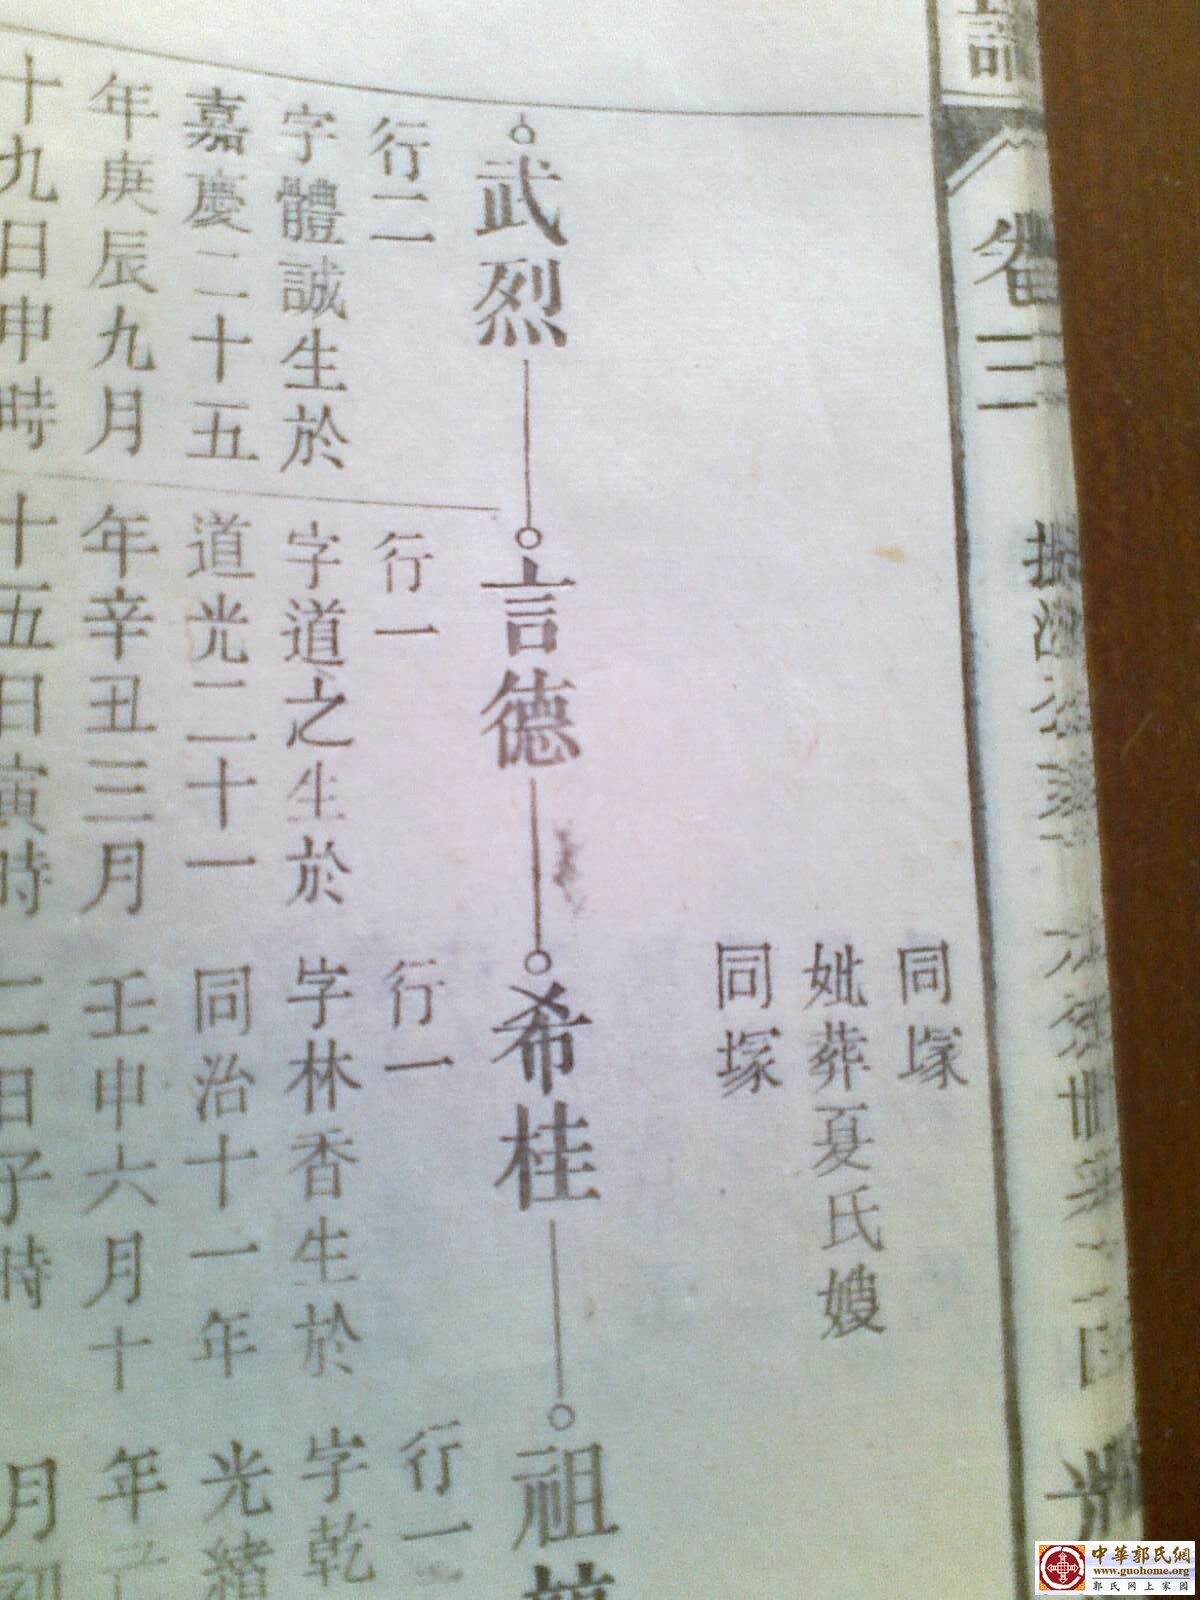 譜
卷三
同塚
妣葬夏氏嫂
同塚
武烈
行二
字體誠生於
嘉慶二十五
年庚辰九月
十九日申時
言德
行一
字道之生於
道光二十一
年辛丑三月
十五日寅時
希桂
行一
字林香生於
同治十一年
壬申六月十
二日子時
祖
行一
字乾
光緒
年
月
中華郭氏網
www.guohome.org
郭氏网上家园